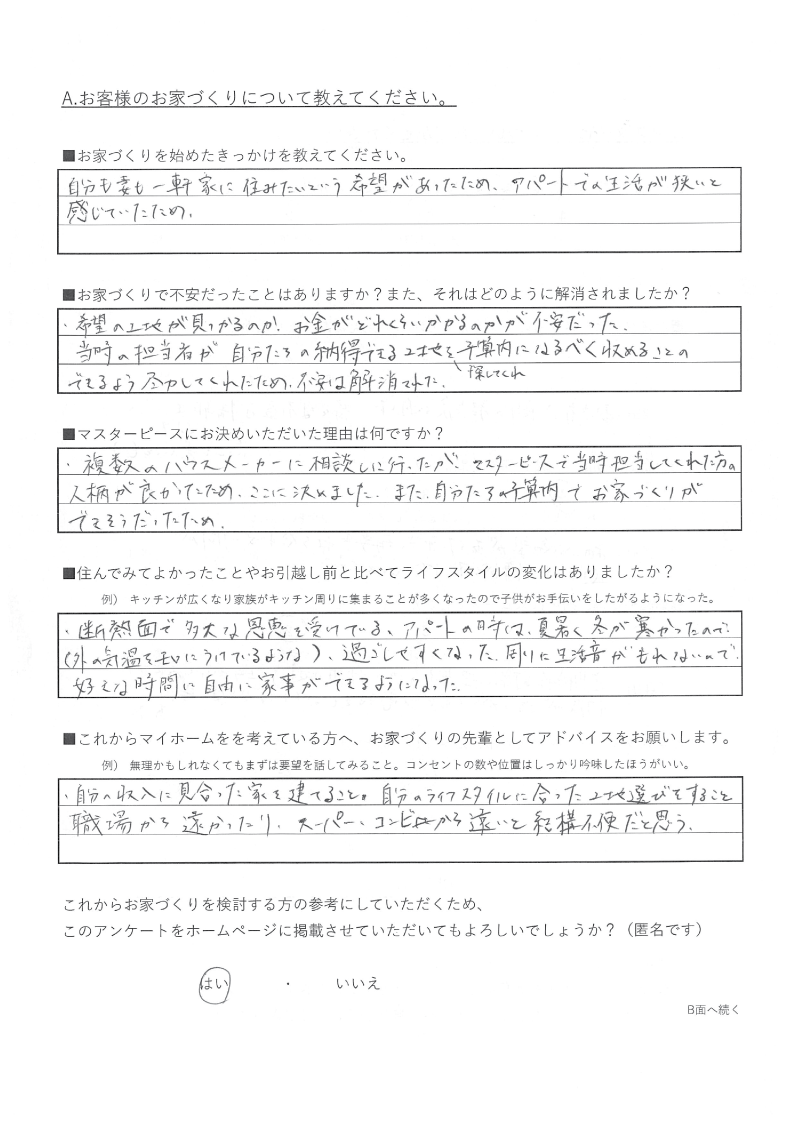 A.お客様のお家づくりについて教えてください。
■お家づくりを始めたきっかけを教えてください。
自分も妻も一軒家に住みたいという希望があったため、アパートでの生活が狭いと
感じていたため。
■お家づくりで不安だったことはありますか？また、それはどのように解消されましたか？
・希望の土地が見つかるのか、お金がどれくらいかかるのかが不安だった。
当時の担当者が自分たちの納得できる土地を予算内になるべく収めることの
探してくれ
できるよう尽力してくれたため、不安は解消された。
■マスターピースにお決めいただいた理由は何ですか？
・複数のハウスメーカーに相談しに行ったが、マスターピースで当時担当してくれた方の
人柄が良かったため、ここに決めました。また、自分たちの予算内でお家づくりが
できそうだったため。
■住んでみてよかったことやお引越し前と比べてライフスタイルの変化はありましたか？
例） キッチンが広くなり家族がキッチン周りに集まることが多くなったので子供がお手伝いをしたがるようになった。
・断熱面で多大な恩恵を受けている、アパートの時は、夏暑く冬が寒かったので
(外の気温をモロにうけているような)、過ごしやすくなった。周りに生活音がもれないので、
好きな時間に自由に家事ができるようになった。
■これからマイホームをを考えている方へ、お家づくりの先輩としてアドバイスをお願いします。
例） 無理かもしれなくてもまずは要望を話してみること。コンセントの数や位置はしっかり吟味したほうがいい。
・自分の収入に見合った家を建てること。自分のライフスタイルに合った土地選びをすること
職場から遠かったり、スーパー、コンビニから遠いと結構不便だと思う。
これからお家づくりを検討する方の参考にしていただくため、
このアンケートをホームページに掲載させていただいてもよろしいでしょうか？（匿名です）
はい ・ いいえ
B面へ続く